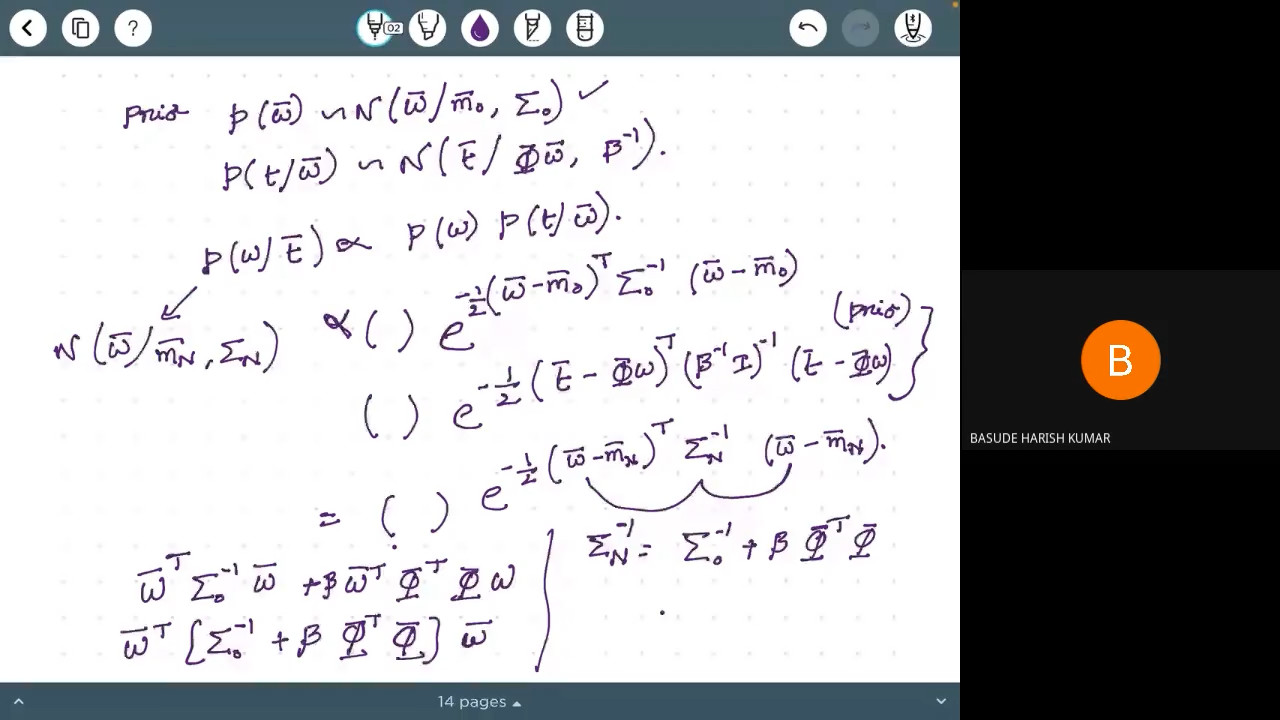 02
prior p(w̄) ∽ N(w̄/m̄₀, Σ₀) ✓
p(t/w̄) ∽ N(t̄/Φw̄, β⁻¹).
p(w/t̄) ∝ p(w) p(t/w̄).
N(w̄/m̄_N, Σ_N) ∝ ( ) e^{-1/2 (w̄-m̄₀)ᵀ Σ₀⁻¹ (w̄-m̄₀)}
(prior)
( ) e^{-1/2 (t̄-Φw)ᵀ (β⁻¹I)⁻¹ (t̄-Φw)}
= ( ) e^{-1/2 (w̄-m̄_N)ᵀ Σ_N⁻¹ (w̄-m̄_N)}.
w̄ᵀ Σ₀⁻¹ w̄ + β w̄ᵀ Φᵀ Φ w
w̄ᵀ [Σ₀⁻¹ + β Φᵀ Φ] w̄
Σ_N⁻¹ = Σ₀⁻¹ + β Φᵀ Φ
14 pages
B
BASUDE HARISH KUMAR